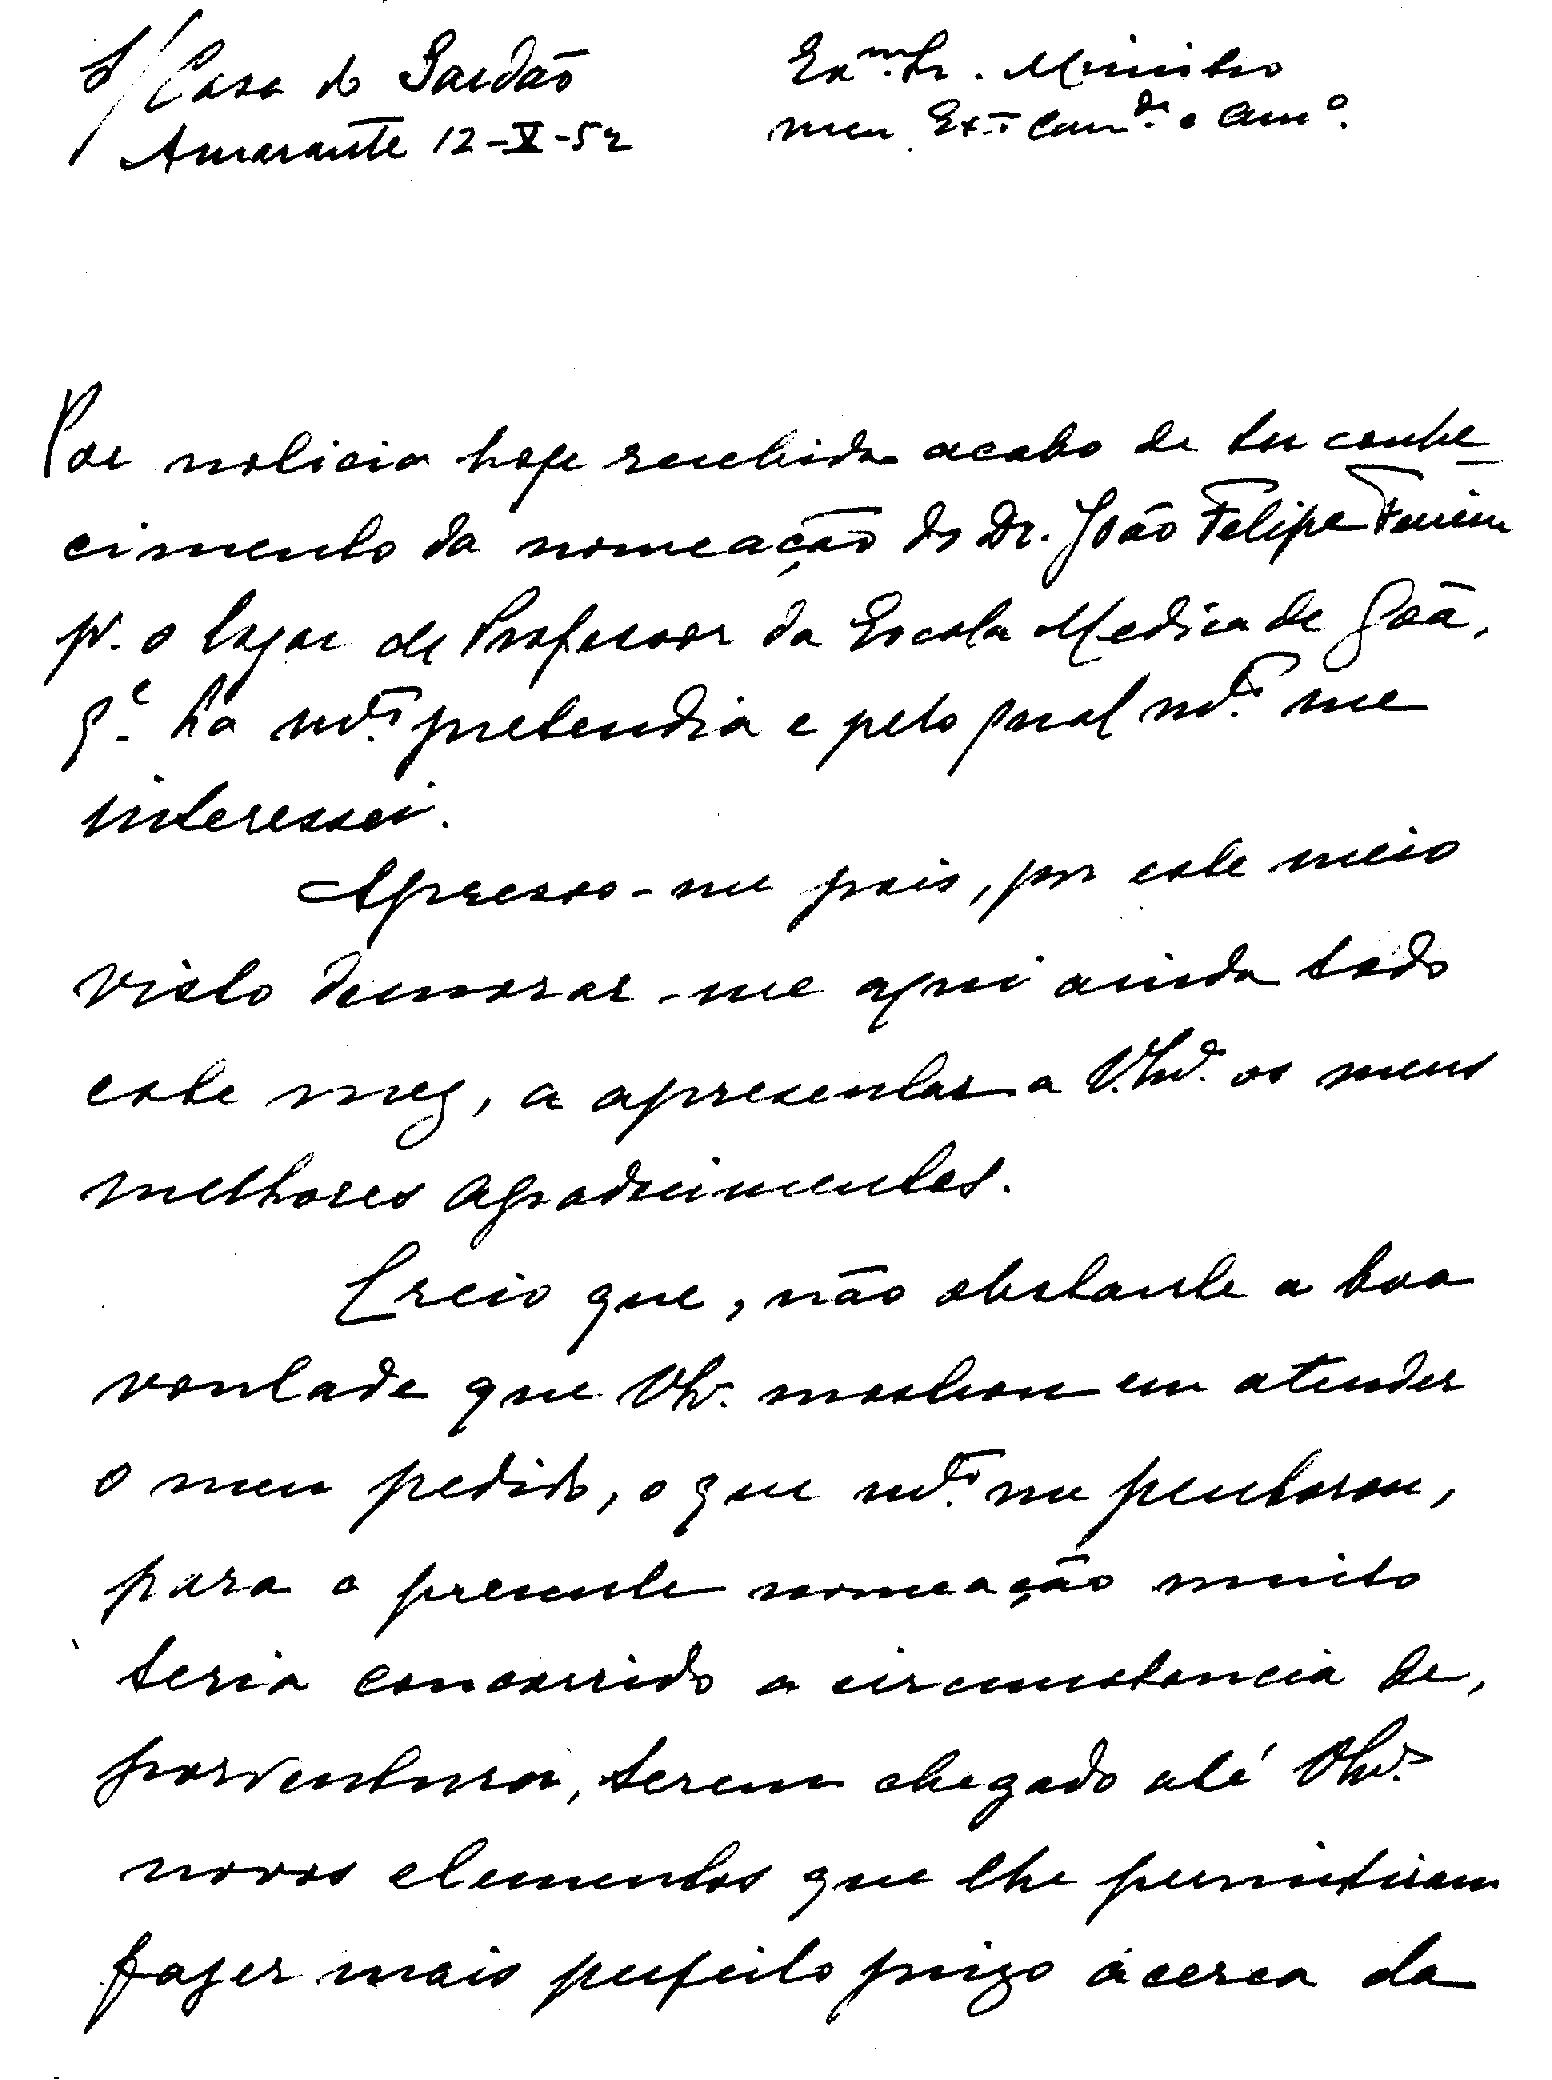 S/ Casa do Sardão
Amarante 12-X-52
Exmº. Sr. Ministro
meu Exmº Camdª. e Amº.
Por noticia hoje recebida acabo de ter conhe-
cimento da nomeação do Dr. João Felipe Ferreira
pª. o logar de Professor da Escola Medica de Goã,
q.e ha mtº. pretendia e pelo qual mtº. me
interessei.
Apresso-me pois, por este meio
visto demorar-me aqui ainda todo
este mez, a apresentar a V. os meus
melhores agradecimentos.
Creio que, não obstante a boa
vontade que V. mostrou em atender
o meu pedido, o que mtº. me penhorou,
para a presente nomeação muito
teria concorrido a circumstancia de,
porventura, terem chegado até
novos elementos que lhe permitiram
fazer mais perfeito juizo ácerca da